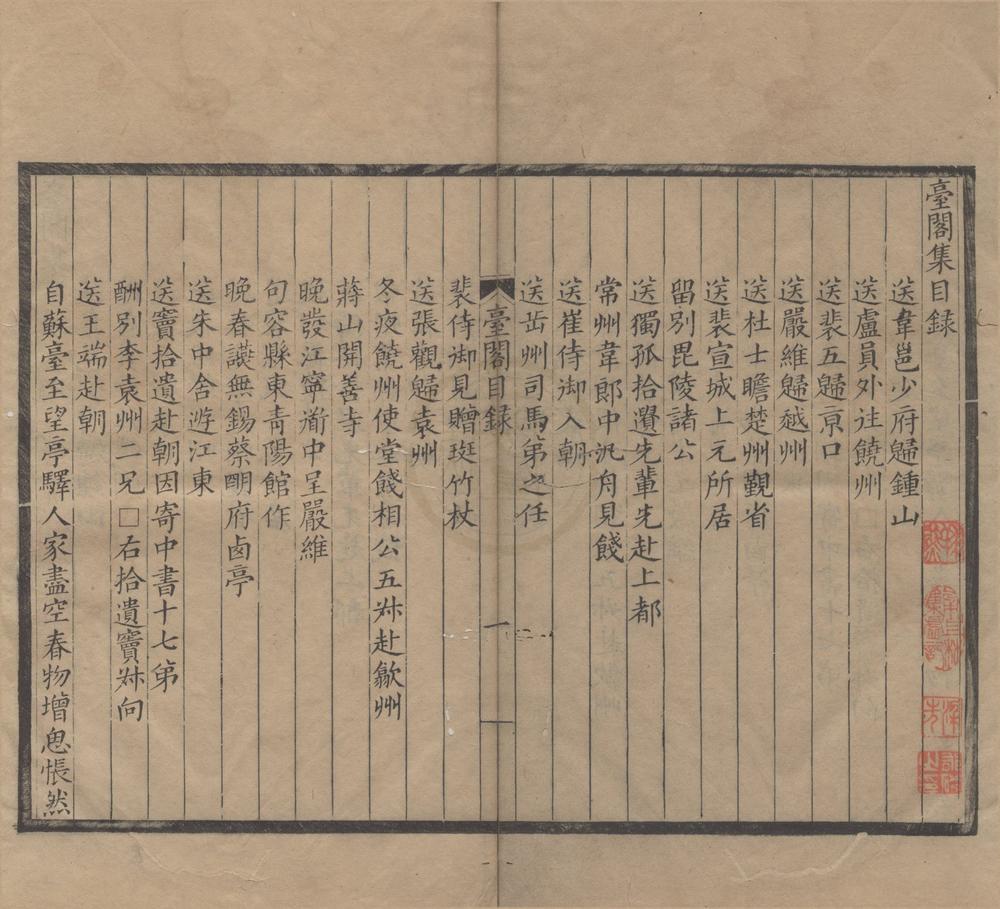 臺閣集目録
送韋邕少府歸鍾山
送盧員外往饒州
送裴五歸京口
送嚴維歸越州
送杜士瞻楚州覲省
送裴宣城上元所居
留別毘陵諸公
送獨孤拾遺先輩先赴上都
常州韋郎中汎舟見餞
送崔侍御入朝
送岳州司馬弟之任
臺閣目録
一
裴侍御見贈斑竹杖
送張觀歸袁州
冬夜饒州使堂餞相公五叔赴歙州
蔣山開善寺
晚發江寧道中呈嚴維
句容縣東青陽館作
晚春讌無錫蔡明府卤亭
送朱中舍遊江東
送竇拾遺赴朝因寄中書十七弟
酬別李袁州二兄□右拾遺竇叔向
送王端赴朝
自蘇臺至望亭驛人家盡空春物增思悵然